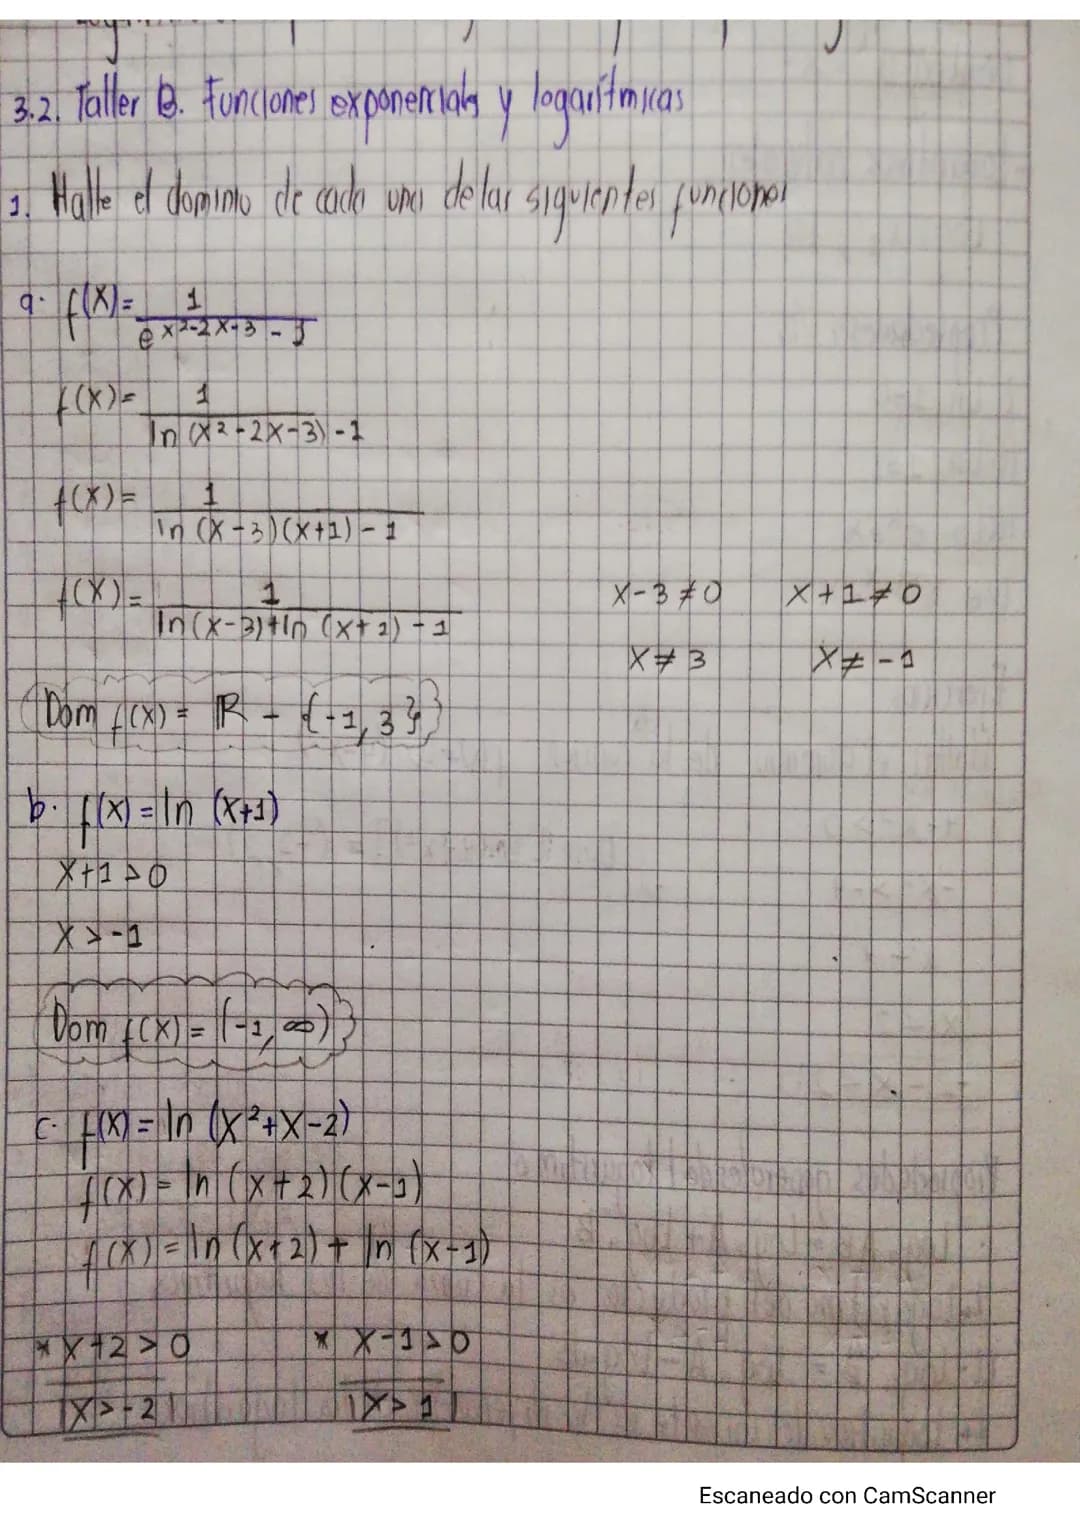 3.2. Taller B. Funciones exponenciales y logarítmicas
1. Halle el dominio de cada una de las siguientes funciones
a. f(x)= 1 / e^(x²-2x-3) - 1
f(x)= 1 / ln (x²-2x-3) - 1
f(x)= 1 / ln (x-3)(x+1) - 1
f(x)= 1 / ln(x-3)+ln (x+1) - 1 x-3≠0 x+1≠0
x≠3 x≠-1
Dom f(x) = ℝ - {-1, 3}
b. f(x) = ln (x+1)
x+1>0
x>-1
Dom f(x) = (-1, ∞)
c. f(x) = ln (x²+x-2)
f(x) = ln (x+2)(x-1)
f(x) = ln (x+2) + ln (x-1)
* x+2>0 * x-1>0
x>-2 x>1
Escaneado con CamScanner